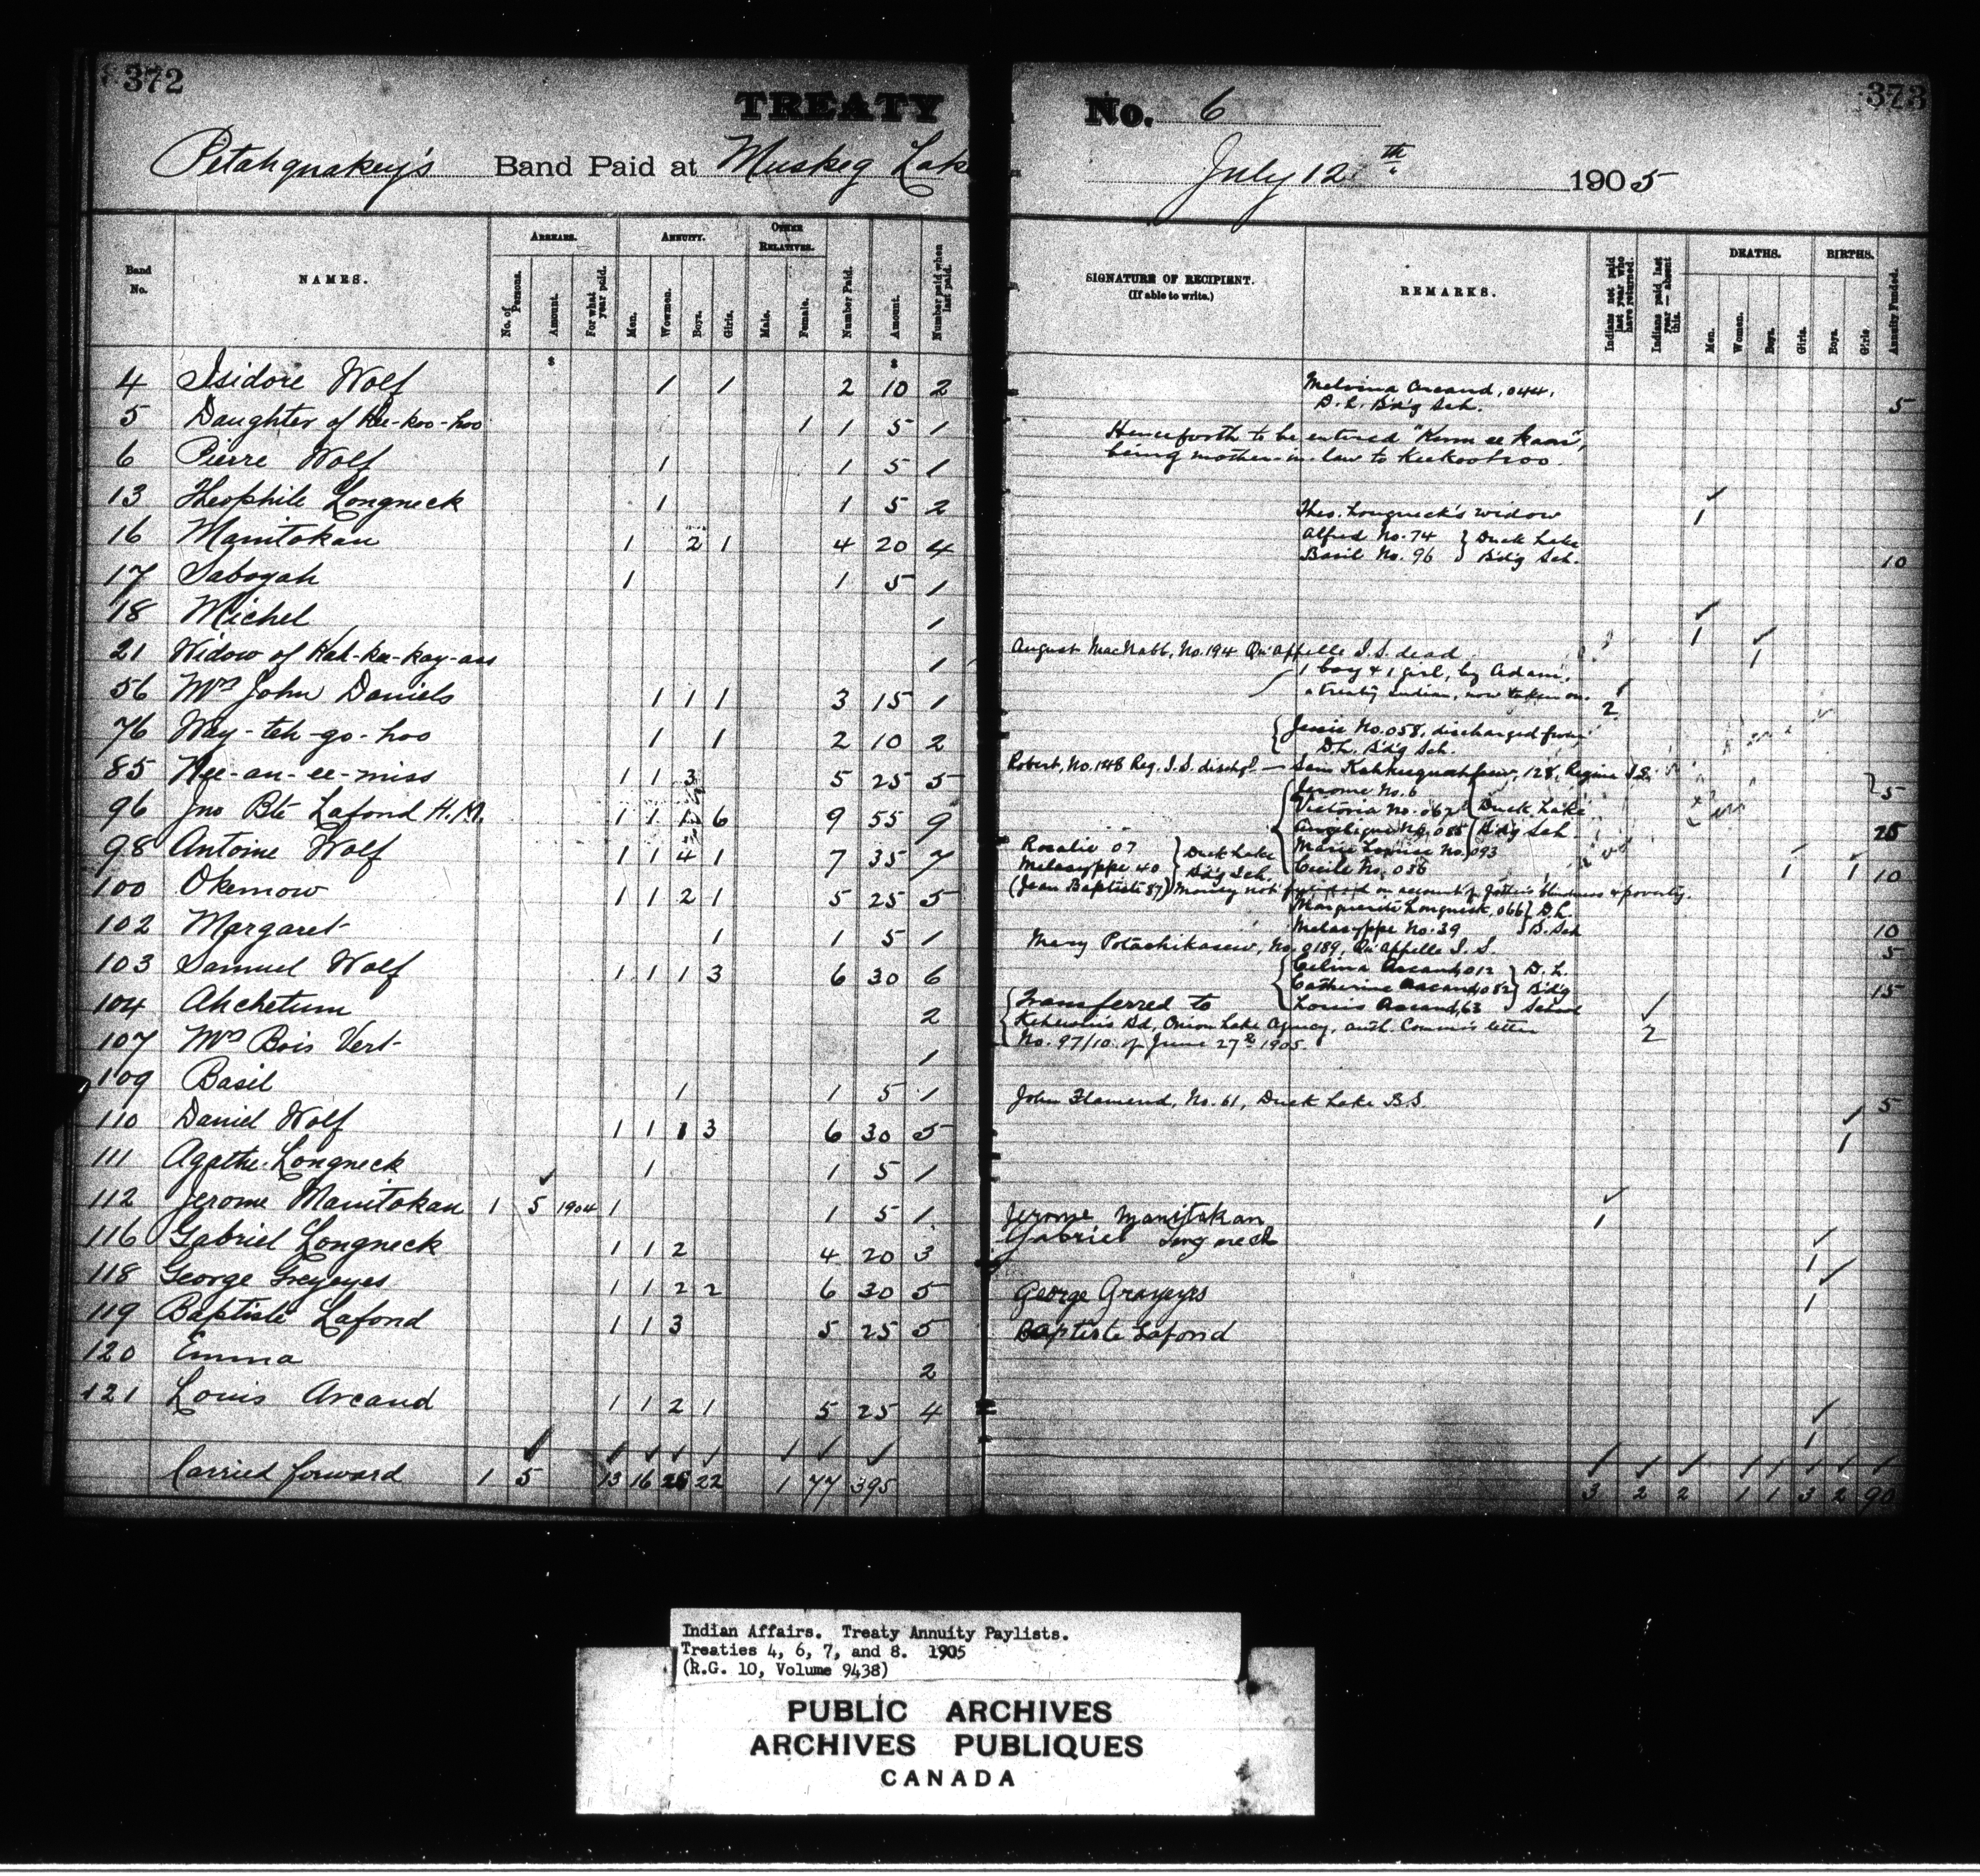 372
TREATY No. 6
373
Petahquakey's Band Paid at Muskeg Lake July 12th 1905
Band No.
NAMES.
ARREARS.
No. of Persons.
Amount.
For what year paid.
ANNUITY.
Men.
Women.
Boys.
Girls.
OTHER RELATIVES.
Male.
Female.
Number Paid.
Amount.
Number paid when last paid.
SIGNATURE OF RECIPIENT.
(If able to write.)
REMARKS.
Indians not paid last year who have returned.
Indians paid last year — absent this.
DEATHS.
Men.
Women.
Boys.
Girls.
BIRTHS.
Boys.
Girls
Annuity Funded.
$ $
4 Isidore Wolf 1 1 2 10 2 Melvina Arcand, 044, 5
D. L. B'd'g Sch.
5 Daughter of Kee-koo-hoo 1 1 5 1 Henceforth to be entered
6 Pierre Wolf 1 1 5 1 being mother-in-law to Keekoohoo.
13 Theophile Longneck 1 1 5 2 Theo. Longneck's widow 1
16 Manitokan 1 2 1 4 20 4 Alfred No. 74 } Duck Lake
Basil No. 96 } B'd'g Sch. 10
17 Sabogah 1 1 5 1
18 Michel 1 1
21 Widow of Kah-ka-kay-ass 1 August MacNabb, No. 194 Qu'Appelle I. S. dead 1
1 boy & 1 girl, by Adam,
56 Mrs John Daniels 1 1 1 3 15 1 a treaty Indian, now taken on. 2
76 Way-teh-go-hoo 1 1 2 10 2 { Jessie No. 058, discharged from
D.L. B'd'g Sch.
85 Nee-an-ee-miss 1 1 3 5 25 5 Robert, No. 148 Reg. I. S. disch'd — Sam 128, Regina I.S. 5
96 Jno Bte Lafond H.M. 1 1 1 6 9 55 9 { Jerome No. 6
Victoria No. 062 Duck Lake
Angelique No. 085 B'd'g Sch 25
Marie Louise No. 093
Cecile No. 036
98 Antoine Wolf 1 1 4 1 7 35 7 Rosalie 07 } Duck Lake 1 1 10
Melasyppe 40 } B'd'g Sch.
(Jean Baptiste 87) Money not funded on account of father's blindness & poverty.
100 Okemow 1 1 2 1 5 25 5 Marguerite Longneck, 066 } D.L.
Melasyppe No. 39 } B. Sch 10
102 Margaret 1 1 5 1 Mary Potachikasew, No. 0189, Qu'Appelle I. S. 5
103 Samuel Wolf 1 1 1 3 6 30 6 { Celina Arcand, 012 } D. L.
Catherine Arcand, 082 } B'd'g 15
Louis Arcand, 63 } School
104 Ahchetum 2 { Transferred to
Keheewin's Bd, Onion Lake Agency, auth. Commr's letter 2
107 Mrs Bois Vert 1 No. 97/10 of June 27th 1905.
109 Basil 1 1 5 1 John Flamend, No. 61, Duck Lake B.S. 5
110 Daniel Wolf 1 1 1 3 6 30 5 1
111 Agathe Longneck 1 1 5 1
112 Jerome Manitokan 1 5 1904 1 1 5 1 Jerome Manitokan 1
116 Gabriel Longneck 1 1 2 4 20 3 Gabriel Longneck 1
118 George Greyeyes 1 1 2 2 6 30 5 George Grayeyes 1
119 Baptiste Lafond 1 1 3 5 25 5 Baptiste Lafond
120 Emma 2
121 Louis Arcand 1 1 2 1 5 25 4 1
Carried forward 1 5 13 16 25 22 1 77 395 3 2 2 1 1 3 2 90
Indian Affairs. Treaty Annuity Paylists.
Treaties 4, 6, 7, and 8. 1905
(R.G. 10, Volume 9438)
PUBLIC ARCHIVES
ARCHIVES PUBLIQUES
CANADA